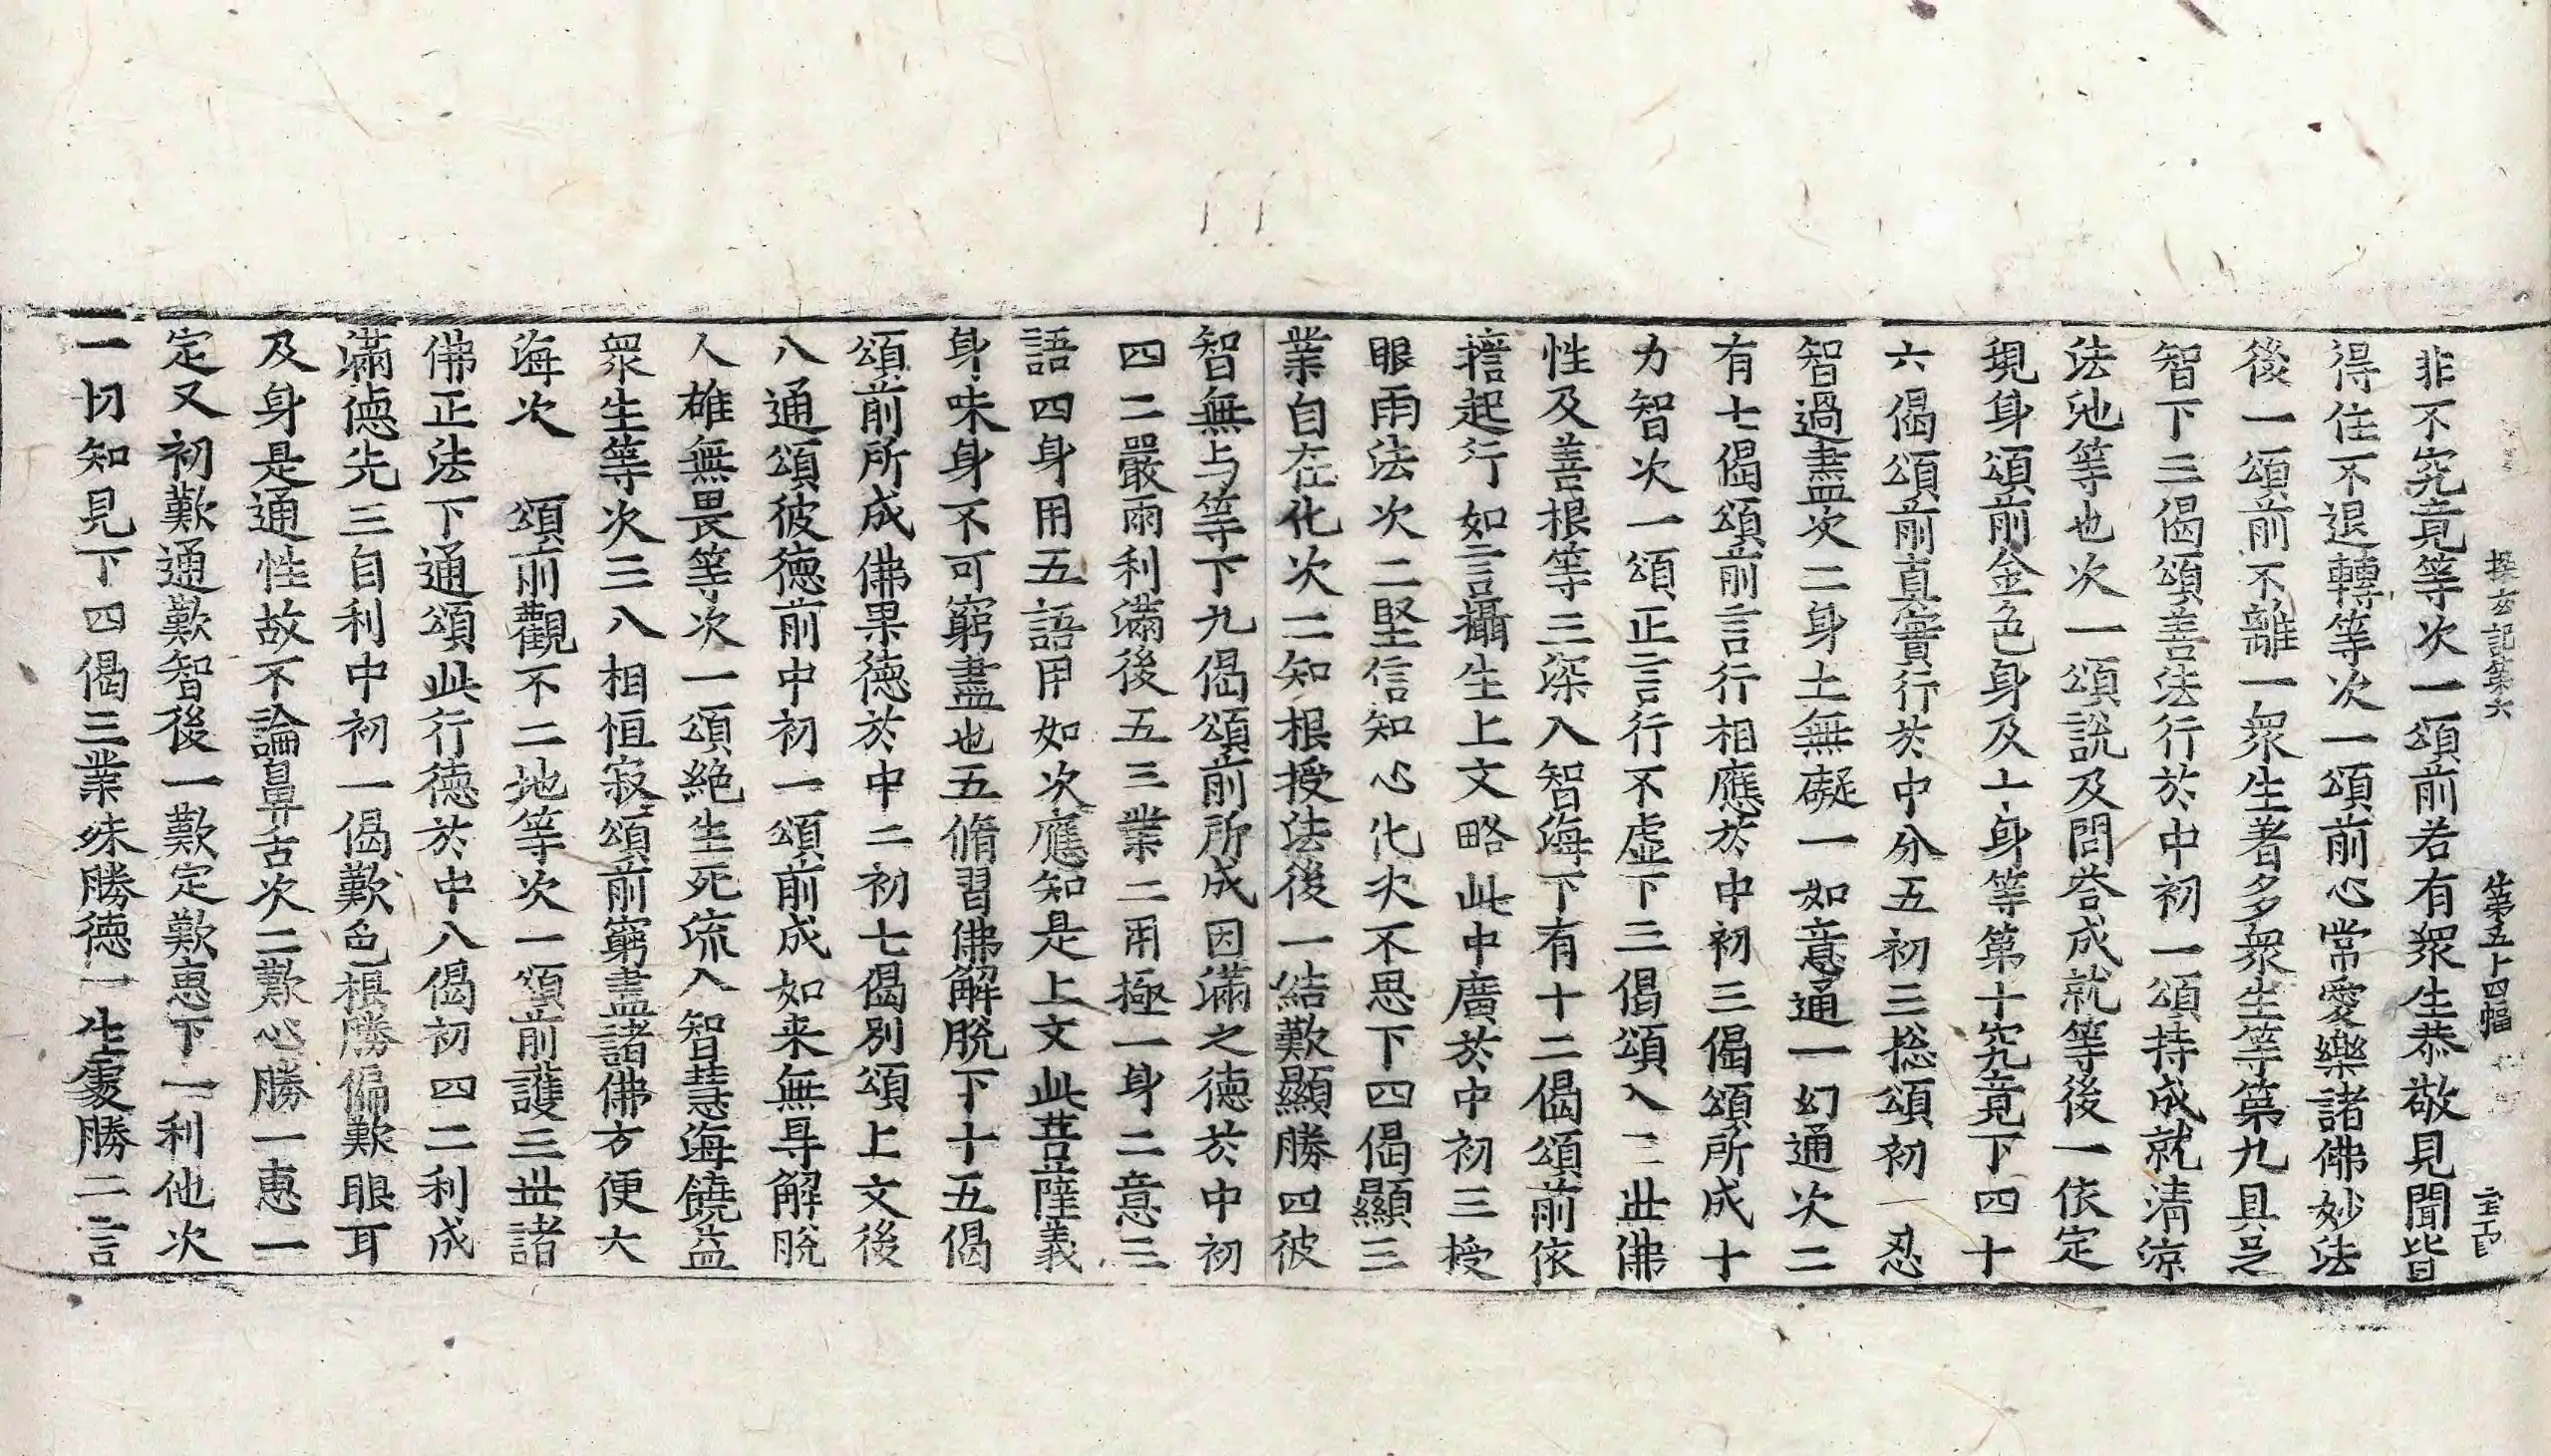 探玄記第六 第五十四幅
非不究竟等次一頌前若有衆生恭敬見聞皆
得住不退轉等次一頌前心常愛樂諸佛妙法
後一頌前不離一衆生著多衆生等第九具足
智下三偈頌善法行於中初一頌持成就清涼
法池等也次一頌說及問荅成就等後一依定
現身頌前金色身及上身等第十究竟下四十
六偈頌前真實行於中分五初三捴頌初一忍
智過盡次二身土無礙一如意通一幻通次二
有七偈頌前言行相應於中初三偈頌所成十
力智次一頌正言行不虛下三偈頌入三世佛
性及善根等三深入智海下有十二偈頌前依
擔起行如言攝生上文略此中廣於中初三授
眼雨法次二堅信知心化次不思下四偈顯三
業自在化次二知根授法後一結歎顯勝四彼
智無与等下九偈頌前所成因滿之德於中初
四二嚴雨利滿後五三業二用極一身二意三
語四身用五語用如次應知是上文此菩薩義
身味身不可窮盡也五脩習佛解脫下十五偈
頌前所成佛果德於中二初七偈別頌上文後
八通頌彼德前中初一頌前成如来無㝵解脫
人雄無畏等次一頌絶生死流入智慧海饒益
衆生等次三八相恒寂頌前窮盡諸佛方便大
海次 頌前觀不二地等次一頌前護三世諸
佛正法下通頌此行德於中八偈初四二利成
滿德先三自利中初一偈歎色根勝偏歎眼耳
及身是通性故不論鼻舌次二歎心勝一惠一
定又初歎通歎智後一歎定歎惠下一利他次
一切知見下四偈三業殊勝德一生處勝二言